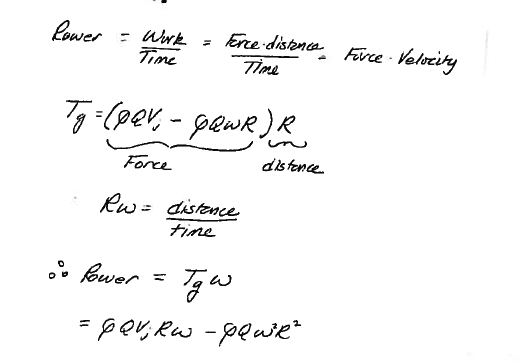 Power = Work/Time = Force·distance/Time = Force·Velocity
Tg = (ρQVj - ρQωR)R
Force distance
Rω = distance/time
∴ Power = Tgω
= ρQVjRω - ρQω²R²